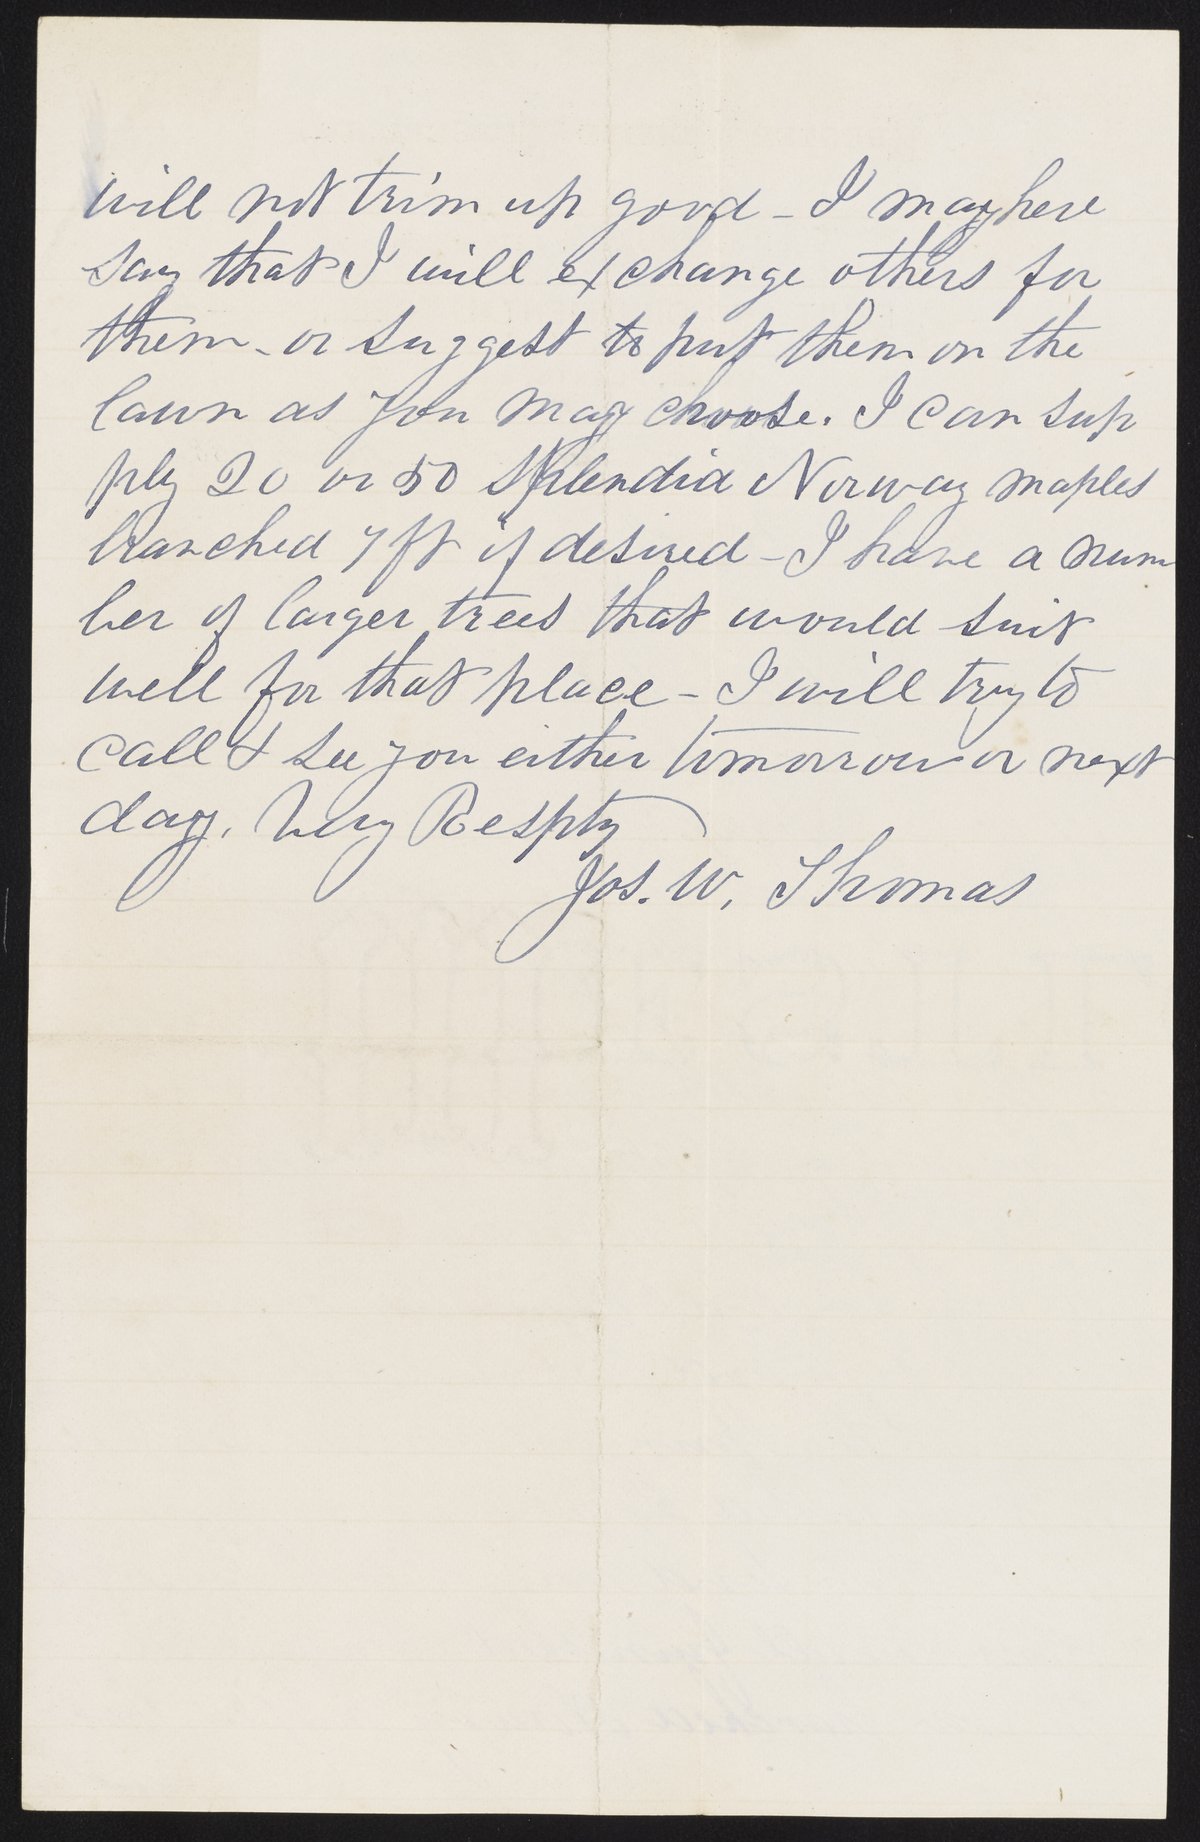 will not trim up good - I may here
say that I will exchange others for
them - or suggest to put them on the
lawn as you may choose. I can sup
ply 20 or 50 splendid Norway maples
branched 7 ft if desired - I have a num
ber of larger trees that would suit
well for that place - I will try to
call & see you either tomorrow or next
day. Very Respty
Jos. W. Thomas